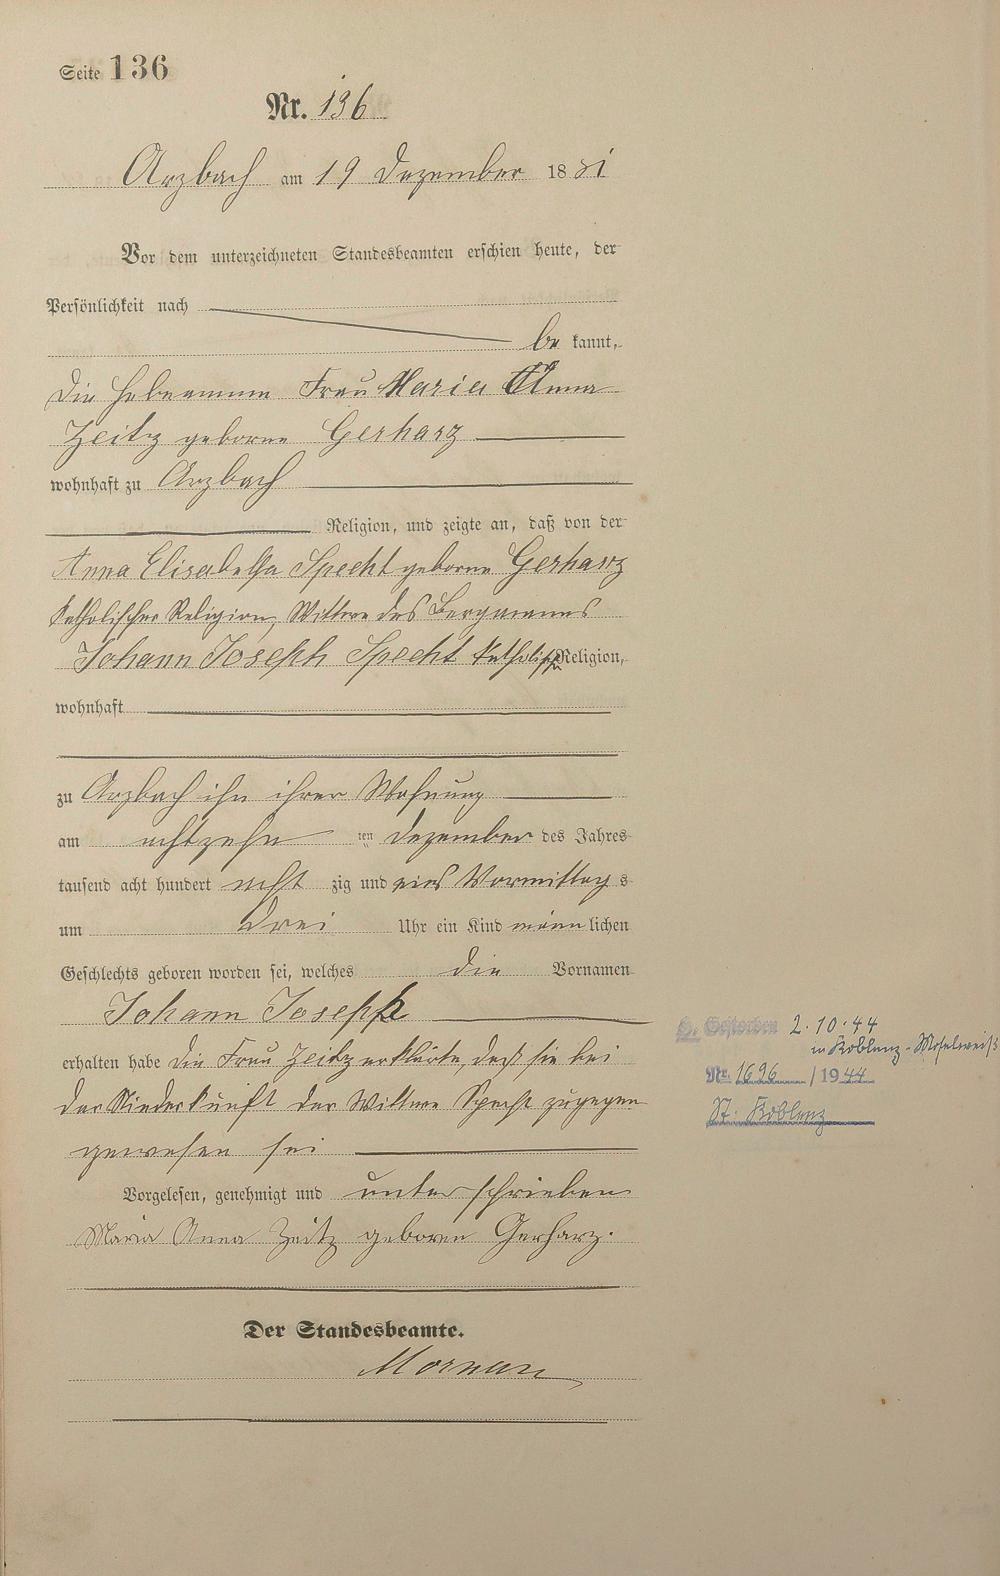 Seite 136
Nr. 136
Arzbach am 19 Dezember 1881
Vor dem unterzeichneten Standesbeamten erschien heute, der
Persönlichkeit nach
be kannt,
die Hebeamme Frau Maria Anna
Zeitz geborne Gerharz
wohnhaft zu Arzbach
Religion, und zeigte an, daß von der
Anna Elisabetha Specht geborne Gerharz
katholischer Religion, Wittwe des Bergmannes
Johann Joseph Specht katholisch Religion,
wohnhaft
zu Arzbach ihn ihrer Wohnung
am achtzehn ten Dezember des Jahres
tausend acht hundert acht zig und eins Vormittag s
um drei Uhr ein Kind männ lichen
Geschlechts geboren worden sei, welches die Vornamen
Johann Joseph
erhalten habe die Frau Zeitz erklärte, daß sie bei
der Niederkunft der Wittwe Specht zugegen
gewesen sei
Vorgelesen, genehmigt und unterschrieben
Maria Anna Zeitz geboren Gerharz.
Der Standesbeamte.
Gestorben 2.10.44
in Koblenz-Moselweiß
Nr. 1696 / 1944
St. Koblenz